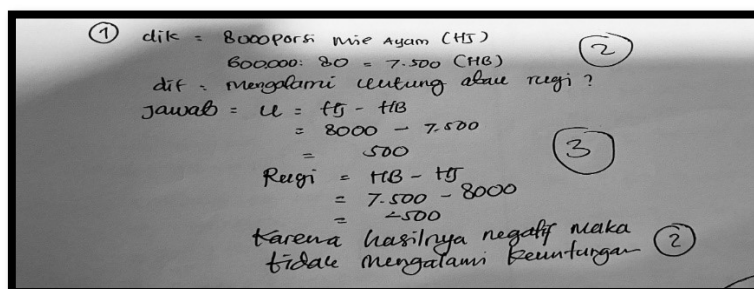 ① dik = 8000 porsi mie Ayam (HJ)
600.000 : 80 = 7.500 (HB) ②
dit = mengalami untung atau rugi ?
Jawab = U = HJ - HB
= 8000 - 7.500
= 500 ③
Rugi = HB - HJ
= 7.500 - 8000
= -500
Karena hasilnya negatif maka
tidak mengalami keuntungan ②